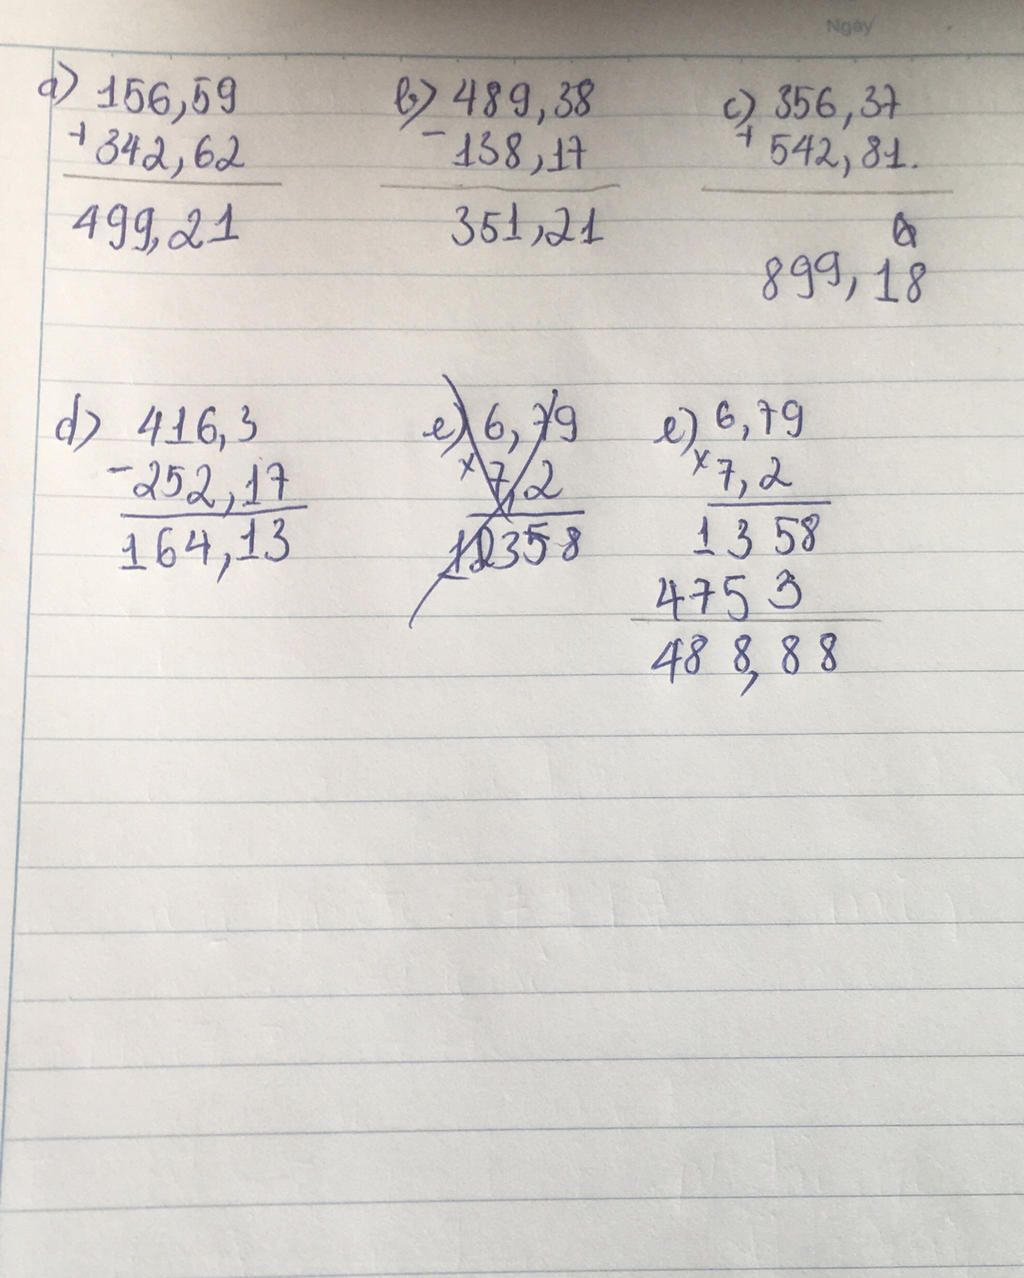 Ngày
a) 156,59 b) 489,38 c) 356,37
+ 342,62 - 138,17 + 542,81.
499,21 351,21
899,18
d) 416,3 e) 6,79 e) 6,79
- 252,17 x 7,2 x 7,2
164,13 12358 1358
4753
488,88